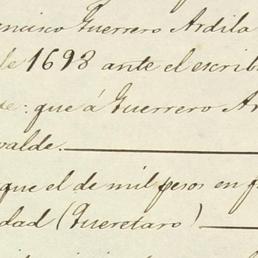 ncisco Guerrero Ardila
de 1698 ante el escrib
de: que á Guerrero Ar
valde.
que el de mil pesos en
dad (Queretaro)